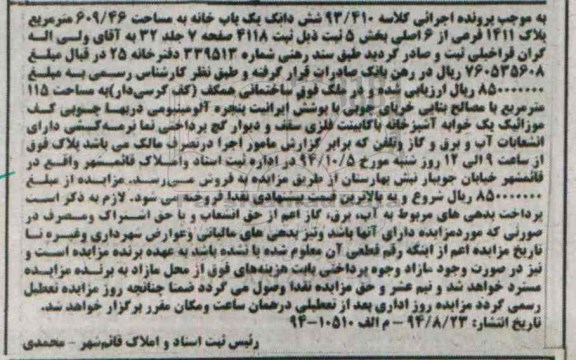 به موجب پرونده اجرائی کلاسه ۹۳/۴۱۰ شش دانگ یک باب خانه به مساحت ۶۰۹/۴۶ مترمربع
پلاک ۱۴۱۱ فرعی از ۶ اصلی بخش ۵ ثبت ذیل ثبت ۴۱۱۸ صفحه ۷ جلد ۳۲ به آقای ولی اله
گران قراخیلی ثبت و صادر گردید طبق سند رهنی شماره ۳۳۹۵۱۳ دفترخانه ۲۵ در قبال مبلغ
۷۶۰۵۳۵۶۰۸ ریال در رهن بانک صادرات قرار گرفته و طبق نظر کارشناس رسمی به مبلغ
۸۵۰۰۰۰۰۰۰ ریال ارزیابی شده و در ملک فوق ساختمانی همکف (کف کرسی‌دار)به مساحت ۱۱۵
مترمربع با مصالح بنایی خرپای چوبی با پوشش ایرانیت پنجره آلومینیومی دربها چوبی کف
موزائیک یک خوابه آشپزخانه باکابینت فلزی سقف و دیوار گچ پرداختی نما نرمه‌کشی دارای
انشعابات آب و برق و گاز وتلفن که برابر گزارش مامور اجرا درتصرف مالک می باشد پلاک فوق
از ساعت ۹ الی ۱۲ روز شنبه مورخ ۹۴/۱۰/۵ در اداره ثبت اسناد واملاک قائمشهر واقع در
قائمشهر خیابان جویبار نبش بهارستان از طریق مزایده به فروش می‌رسد. مزایده از مبلغ
۸۵۰۰۰۰۰۰۰ ریال شروع و به بالاترین قیمت پیشنهادی نقدا فروخته می شود. لازم به ذکر است
پرداخت بدهی های مربوط به آب، برق، گاز اعم از حق انشعاب و یا حق اشتراک ومصرف در
صورتی که موردمزایده دارای آنها باشد ونیز بدهی های مالیاتی وعوارض شهرداری وغیره تا
تاریخ مزایده اعم از اینکه رقم قطعی آن معلوم شده یا نشده باشد به عهده برنده مزایده است و
نیز در صورت وجود مازاد وجوه پرداختی بابت هزینه‌های فوق از محل مازاد به برنده مزایده
مسترد خواهد شد و نیم عشر و حق مزایده نقدا وصول می گردد ضمنا چنانچه روز مزایده تعطیل
رسمی گردد مزایده روز اداری بعد از تعطیلی درهمان ساعت ومکان مقرر برگزار خواهد شد.
تاریخ انتشار: ۹۴/۸/۲۳ – م الف ۱۰۵۱۰-۹۴
رئیس ثبت اسناد و املاک قائم‌شهر - محمدی